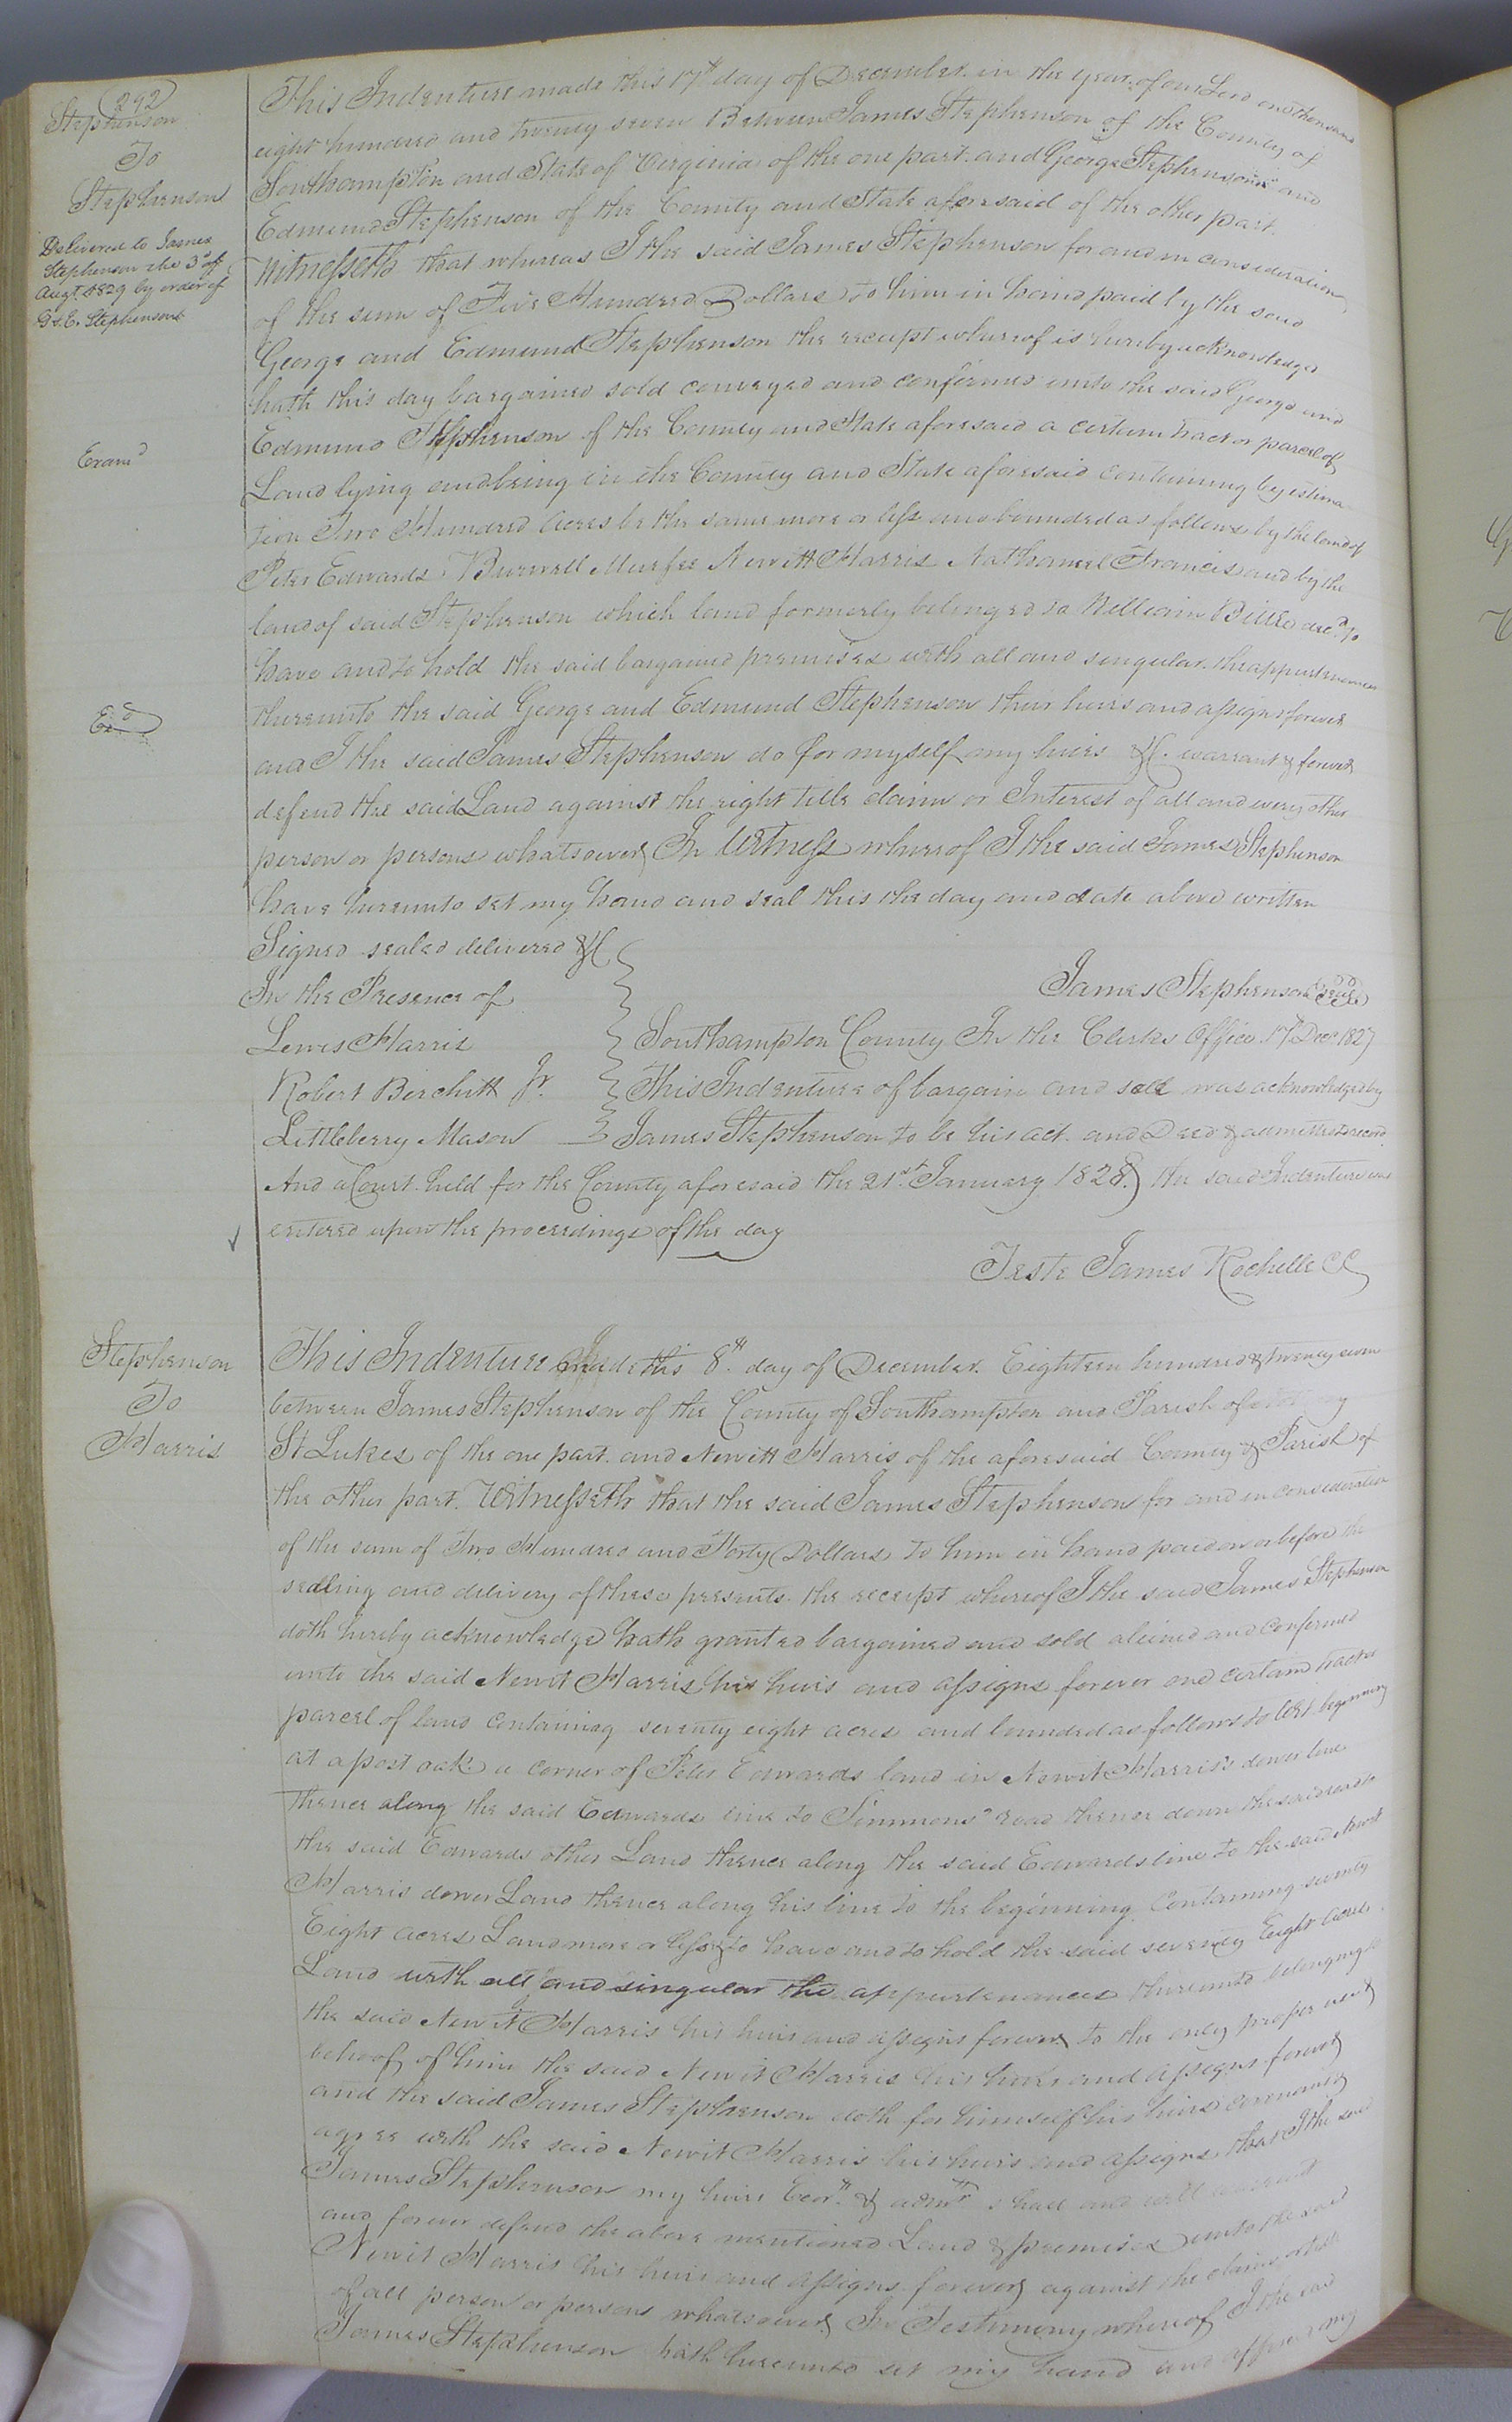 292
Stephenson
To
Stephenson
Delivered to James
Stephenson the 3d of
Augt. 1829 by order of
G & E. Stephenson
Examd
Exd
This Indenture made this 17th day of December in the year of our Lord one thousand
eight hundred and twenty seven Between James Stephenson of the County of
Southampton and State of Virginia of the one part and George Stephenson and
Edmund Stephenson of the County and State aforesaid of the other part.
Witnesseth that whereas I the said James Stephenson for and in consideration
of the sum of Five Hundred Dollars to him in hand paid by the said
George and Edmund Stephenson the receipt whereof is hereby acknowledged
hath this day bargained sold conveyed and confirmed unto the said George and
Edmund Stephenson of the County and State aforesaid a certain tract or parcel of
Land lying and being in the County and State aforesaid containing by estima-
tion Two Hundred acres be the same more or less and bounded as follows by the land of
Peter Edwards Burwell Murfee Newitt Harris Nathaniel Francis and by the
land of said Stephenson which land formerly belonged to William decd. to
have and to hold the said bargained premises with all and singular the appurtenances
thereunto the said George and Edmund Stephenson their heirs and assigns forever
and I the said James Stephenson do for myself my heirs &c. warrant & forever
defend the said Land against the right title claim or Interest of all and every other
person or persons whatsoever In Witness whereof I the said James Stephenson
have hereunto set my hand and seal this the day and date above written
Signed sealed delivered &c
In the Presence of
James Stephenson (seal)
Lewis Harris
Robert Birchett Jr.
Littleberry Mason
Southampton County In the Clerks Office 17th Decr. 1827
This Indenture of bargain and sale was acknowledged by
James Stephenson to be his act and Deed & admitted to record
And a Court held for the County aforesaid the 21st January 1828. the said Indenture was
entered upon the proceedings of the day
Teste James Rochelle CC
Stephenson
To
Harris
This Indenture made this 8th. day of December Eighteen hundred & twenty seven
between James Stephenson of the County of Southampton and Parish of
St Lukes of the one part and Newitt Harris of the aforesaid County & Parish of
the other part. Witnesseth that the said James Stephenson for and in consideration
of the sum of Two Hundred and Forty Dollars to him in hand paid on or before the
sealing and delivery of these presents the receipt whereof I the said James Stephenson
doth hereby acknowledge hath granted bargained and sold aliened and confirmed
unto the said Newit Harris his heirs and assigns forever one certain tract or
parcel of land containing seventy eight acres and bounded as follows to wit beginning
at a post oak a corner of Peter Edwards land in Newit Harris's dower line
thence along the said Edwards line to Simmons' road thence down the said road to
the said Edwards other Land thence along the said Edwards line to the said Newit
Harris dower Land thence along his line to the beginning Containing seventy
Eight acres Land more or less & to have and to hold the said seventy Eight acres
Land with all and singular the appurtenances thereunto belonging to
the said Newit Harris his heirs and assigns forever to the only proper use &
behoof of him the said Newit Harris his heirs and assigns forever
and the said James Stephenson doth for himself his heirs covenant &
agree with the said Newit Harris his heirs and assigns that I the said
James Stephenson my heirs Exors. & admrs shall and will warrant
and forever defend the above mentioned Land & premises unto the said
Newit Harris his heirs and assigns forever against the claim or title
of all person or persons whatsoever In Testimony whereof I the said
James Stephenson hath hereunto set my hand and affixed my